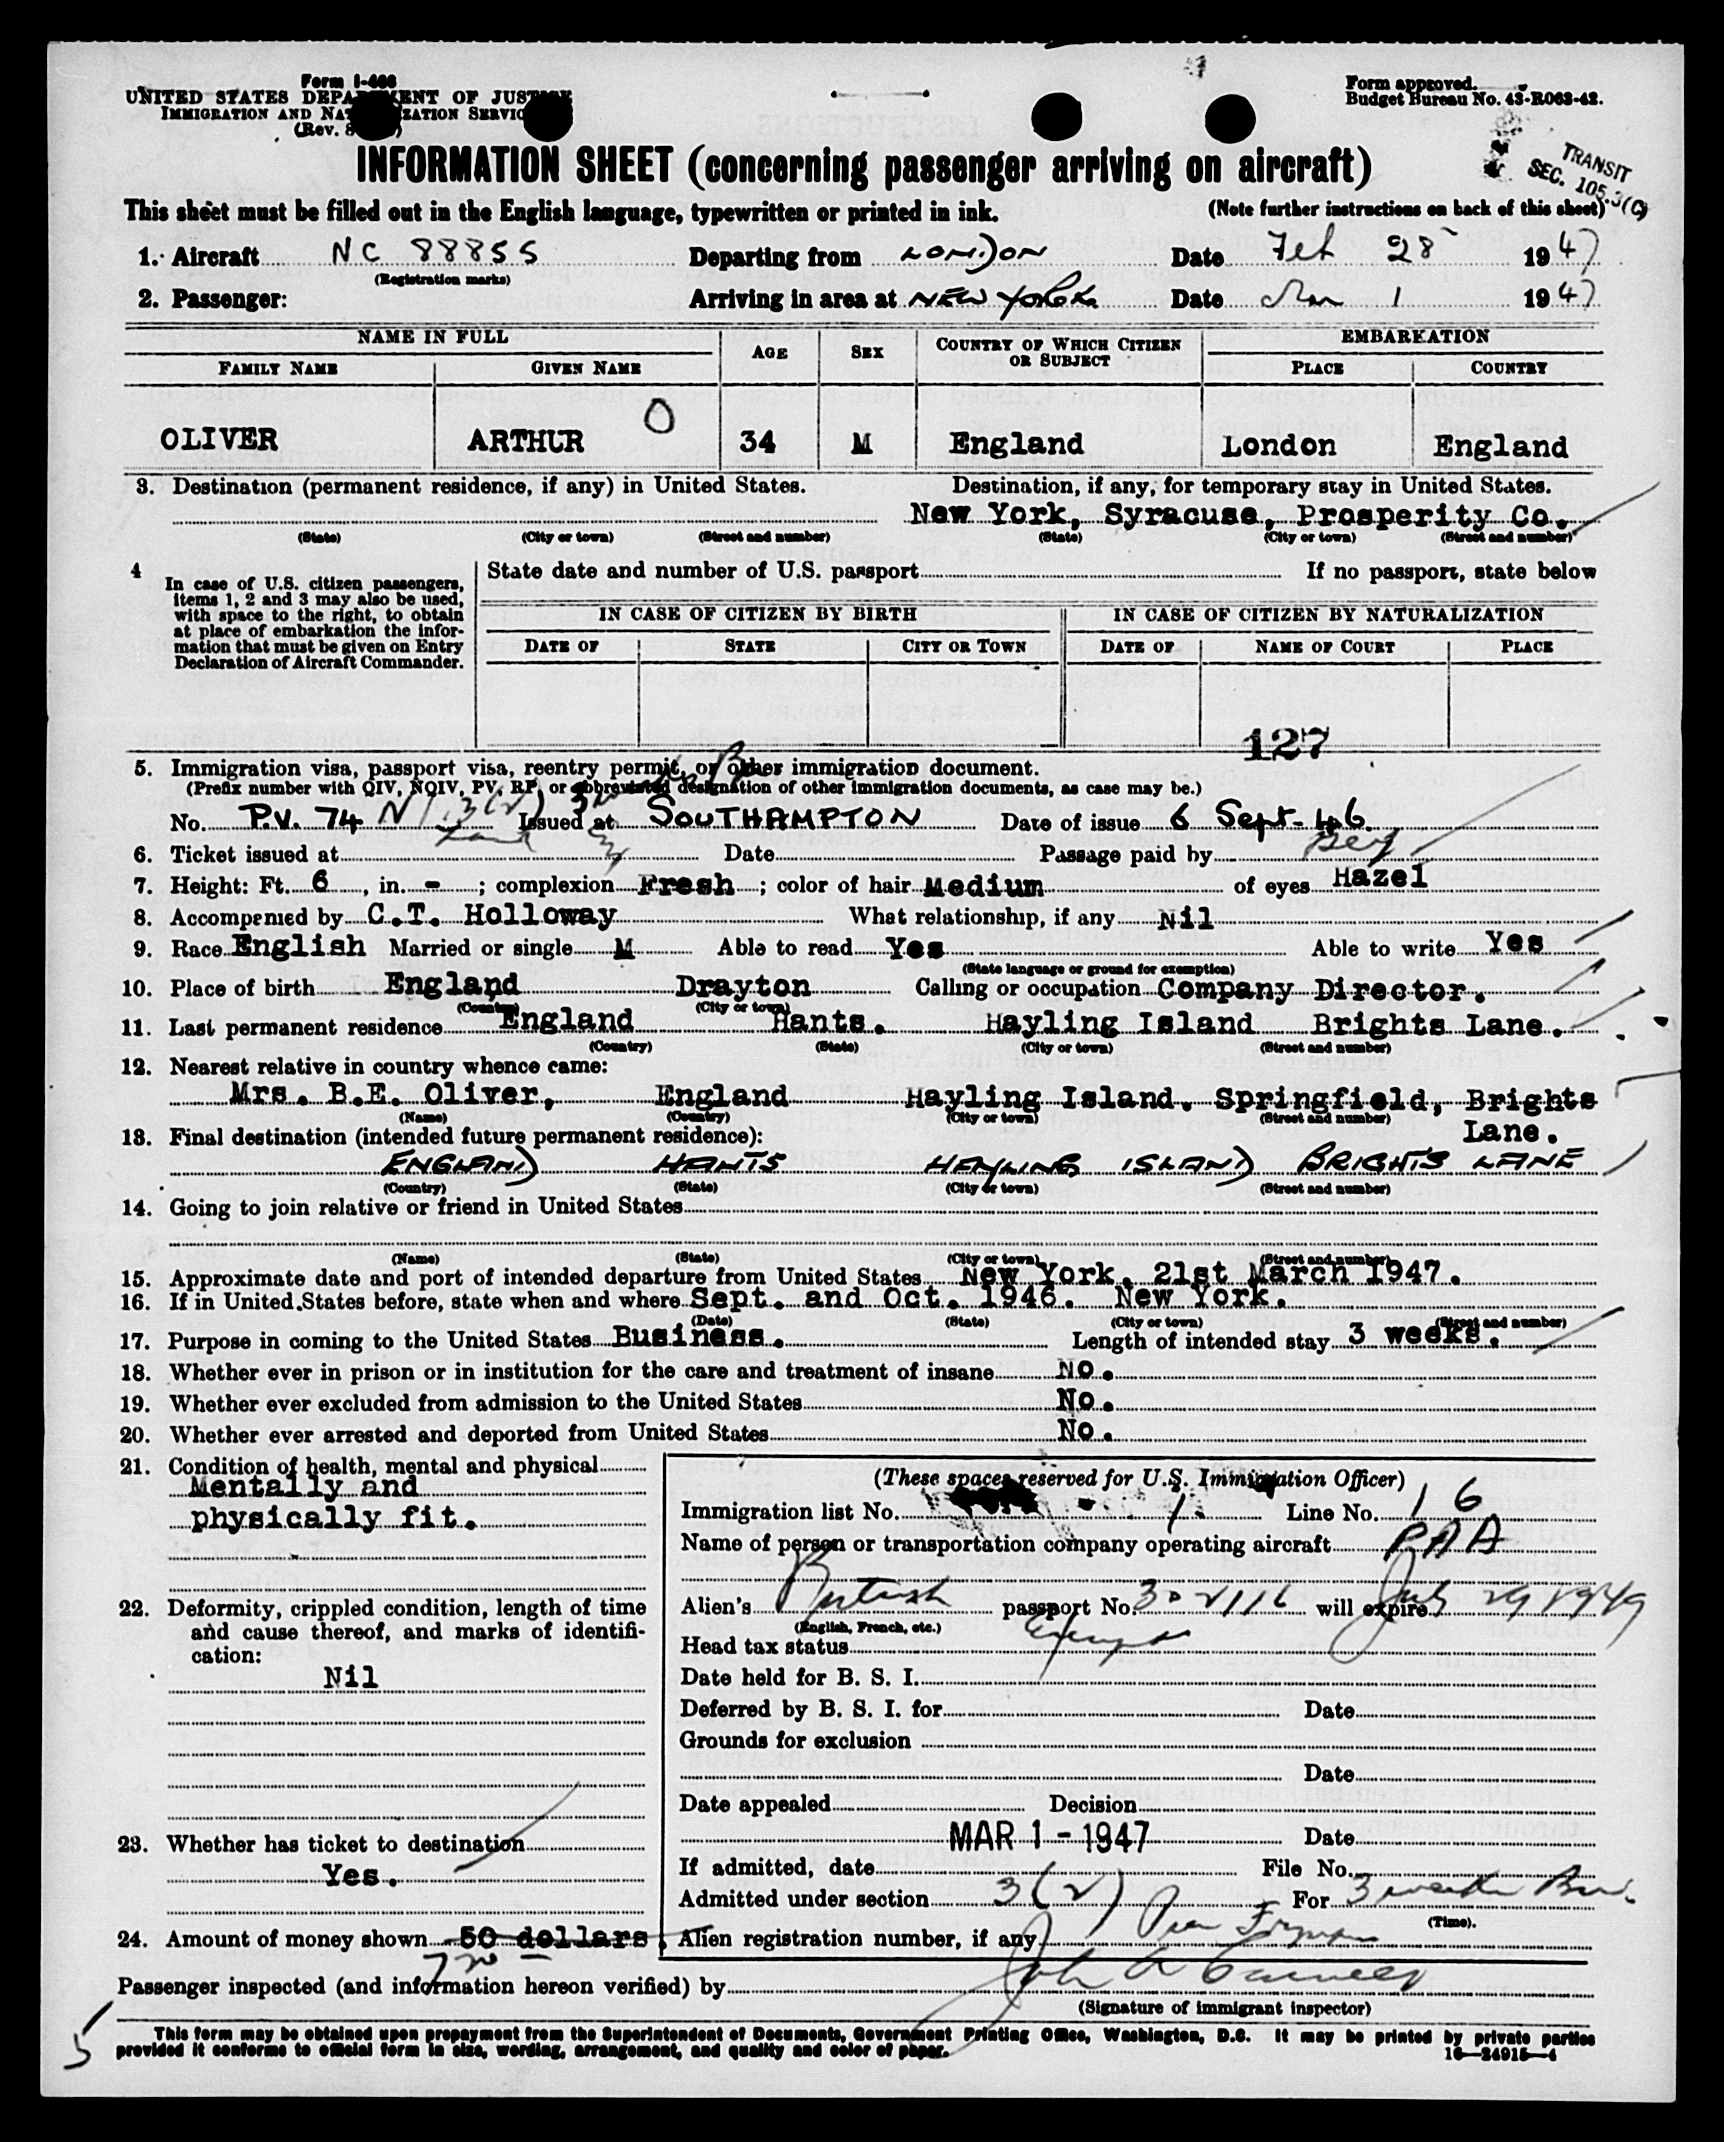 Form I-466
UNITED STATES DEPARTMENT OF JUSTICE
IMMIGRATION AND NATURALIZATION SERVICE
(Rev. 8
Form approved.
Budget Bureau No. 43-R063-42.
INFORMATION SHEET (concerning passenger arriving on aircraft)
TRANSIT
SEC. 105.3(C)
This sheet must be filled out in the English language, typewritten or printed in ink. (Note further instructions on back of this sheet)
1. Aircraft NC 88855 Departing from LONDON Date Feb 28 1947
(Registration marks)
2. Passenger: Arriving in area at NEW YORK Date Mar 1 1947
NAME IN FULL AGE SEX COUNTRY OF WHICH CITIZEN OR SUBJECT EMBARKATION
FAMILY NAME GIVEN NAME PLACE COUNTRY
O
OLIVER ARTHUR 34 M England London England
3. Destination (permanent residence, if any) in United States. Destination, if any, for temporary stay in United States.
New York, Syracuse, Prosperity Co.
(State) (City or town) (Street and number) (State) (City or town) (Street and number)
4 In case of U.S. citizen passengers, items 1, 2 and 3 may also be used, with space to the right, to obtain at place of embarkation the information that must be given on Entry Declaration of Aircraft Commander.
State date and number of U.S. passport If no passport, state below
IN CASE OF CITIZEN BY BIRTH IN CASE OF CITIZEN BY NATURALIZATION
DATE OF STATE CITY OR TOWN DATE OF NAME OF COURT PLACE
127
5. Immigration visa, passport visa, reentry permit, or other immigration document.
(Prefix number with QIV, NQIV, PV, RP, or abbreviated designation of other immigration documents, as case may be.)
No. P.V. 74 Issued at SOUTHAMPTON Date of issue 6 Sept-46.
6. Ticket issued at Date Passage paid by
7. Height: Ft. 6, in. -; complexion Fresh; color of hair Medium of eyes Hazel
8. Accompanied by C.T. Holloway What relationship, if any Nil
9. Race English Married or single M Able to read Yes Able to write Yes
(State language or ground for exemption)
10. Place of birth England Drayton Calling or occupation Company Director.
(Country) (City or town)
11. Last permanent residence England Hants. Hayling Island Brights Lane.
(Country) (State) (City or town) (Street and number)
12. Nearest relative in country whence came:
Mrs. B.E. Oliver, England Hayling Island. Springfield, Brights Lane.
(Name) (Country) (City or town) (Street and number)
13. Final destination (intended future permanent residence):
ENGLAND HANTS HAYLING ISLAND BRIGHTS LANE
(Country) (State) (City or town) (Street and number)
14. Going to join relative or friend in United States
(Name) (State) (City or town) (Street and number)
15. Approximate date and port of intended departure from United States New York. 21st March 1947.
16. If in United States before, state when and where Sept. and Oct. 1946. New York.
(Date) (State) (City or town) (Street and number)
17. Purpose in coming to the United States Business. Length of intended stay 3 weeks.
18. Whether ever in prison or in institution for the care and treatment of insane No.
19. Whether ever excluded from admission to the United States No.
20. Whether ever arrested and deported from United States No.
21. Condition of health, mental and physical
Mentally and
physically fit.
22. Deformity, crippled condition, length of time
and cause thereof, and marks of identifi-
cation:
Nil
23. Whether has ticket to destination
Yes.
24. Amount of money shown 50 dollars
(These spaces reserved for U.S. Immigration Officer)
Immigration list No. 1. Line No. 16
Name of person or transportation company operating aircraft PAA
Alien's British passport No. 302116 will expire July 29 1949
(English, French, etc.)
Head tax status Exempt
Date held for B. S. I.
Deferred by B. S. I. for Date
Grounds for exclusion
Date
Date appealed Decision
MAR 1 - 1947 Date
If admitted, date File No.
Admitted under section 3(2) For 3 weeks Bus.
(Time).
Alien registration number, if any
Passenger inspected (and information hereon verified) by
(Signature of immigrant inspector)
This form may be obtained upon prepayment from the Superintendent of Documents, Government Printing Office, Washington, D.C. It may be printed by private parties
provided it conforms to official form in size, wording, arrangement, and quality and color of paper.
16—24915—4
5